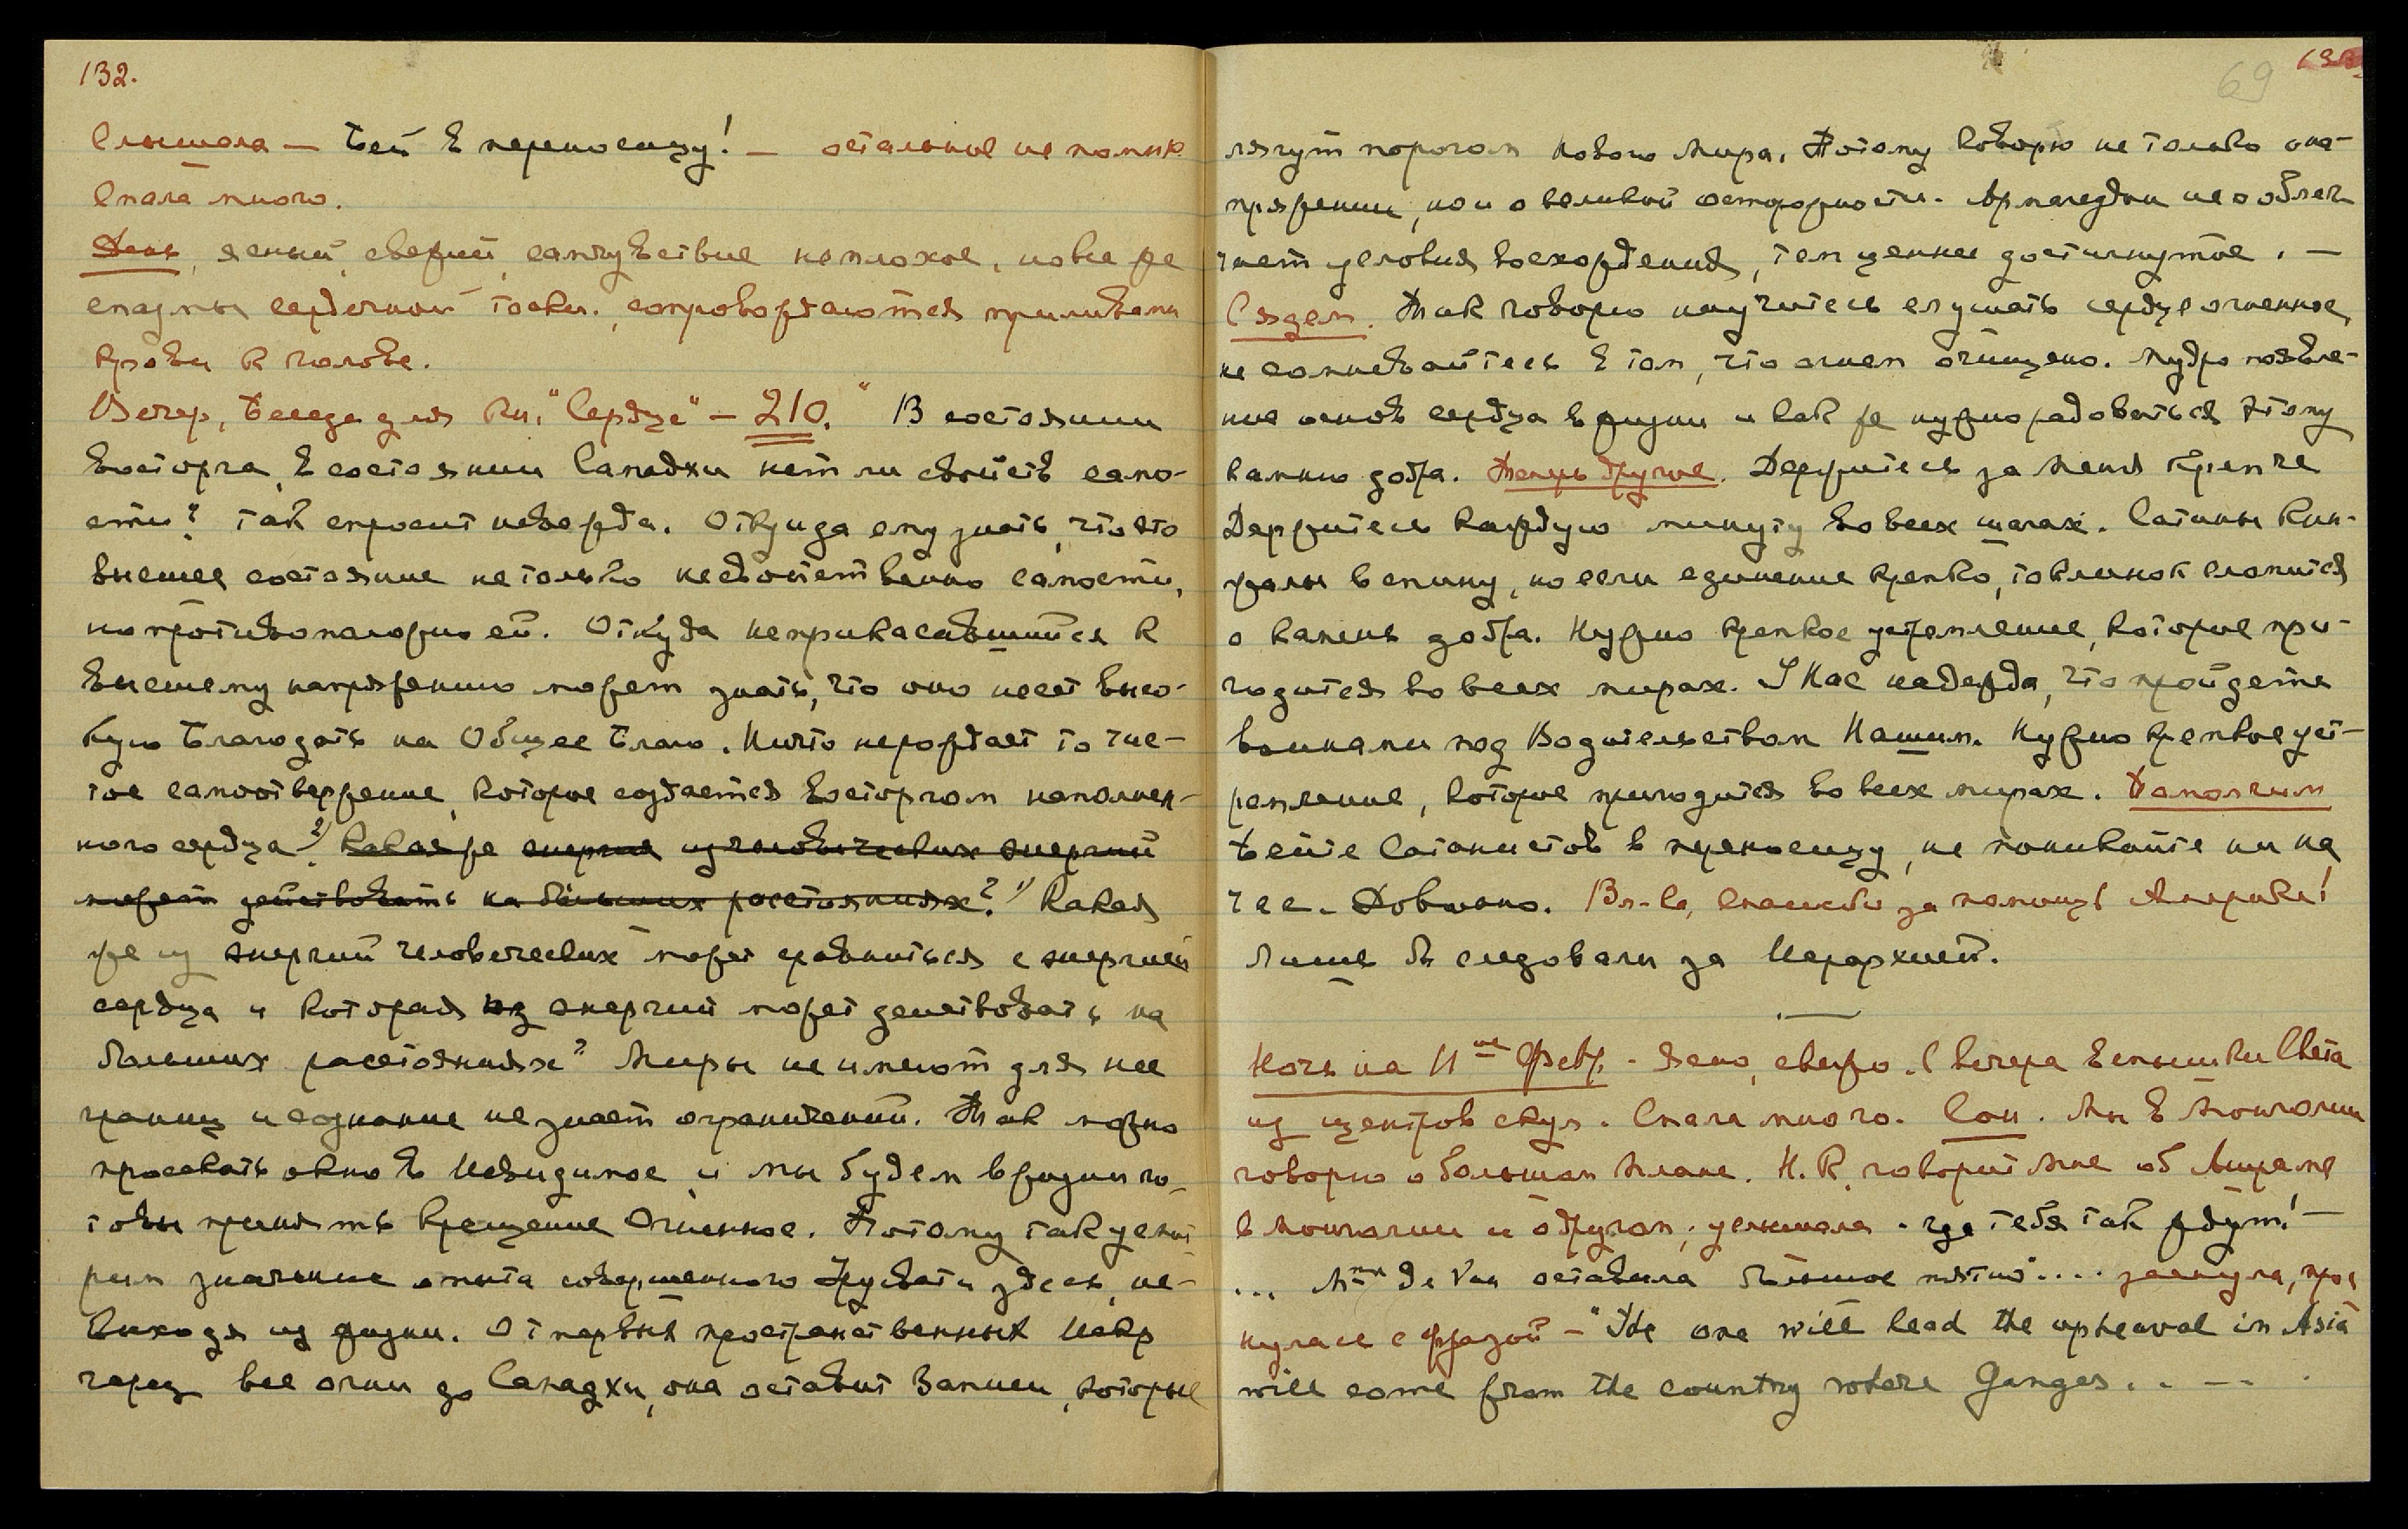 132.
Слышала — Бей в переносицу! — остальное не помню
Спала много.
День, ясный, свежий, самочувствие неплохое, но все же
спазмы сердечной тоски, сопровождаются приливами
крови к голове.
Вечер, Беседа для Кн. "Сердце" — 210." В состоянии
восторга, в состоянии Самадхи нет ли свойств само-
сти? так спросит невежда. Откуда ему знать, что это
высшее состояние не только несвойственно самости,
но противоположно ей. Откуда неприкасавшийся к
высшему напряжению может знать, что оно несет высо-
кую Благодать на Общее Благо. Ничто нерождает то чис-
тое самоотвержение, которое создается восторгом наполнен-
ного сердца? Какая же энергия из человеческих энергий
может действовать на больших расстояниях? Какая
же из энергий человеческих может сравниться с энергией
сердца и которая из энергий может действовать на
больших расстояниях? Миры не имеют для нее
границ и сознание не знает ограничений. Так можно
просекать окно в Невидимое, и мы будем в жизни го-
товы принять Крещение Огненное. Потому так усмот-
рим значение опыта совершенного Урусвати здесь, не-
выходя из жизни. От первых пространственных Искр
через все огни до Самадхи, она оставит Записи, которые
69
лягут порогом Нового Мира. Потому говорю не только о на-
пряжении, но и о великой осторожности. Армагеддон не облег-
чает условия восхождения, тем ценнее достигнутое. —
Сядем. Так говорю научитесь слушать сердце огненное,
не сомневайтесь в том, что огнем очищено. Мудро появле-
ние основ сердца в жизни и как же нужно радоваться этому
камню добра. Теперь другое. Держитесь за Меня крепче
Держитесь каждую минуту во всех шагах. Сатаны кин-
жалы в спину, но если единение крепко, то клинок сломится
о камень добра. Нужно крепкое устремление, которое при-
годится во всех мирах. У Нас надежда, что пройдете
воинами под Водительством Нашим. Нужно крепкое уст-
ремление, которое пригодится во всех мирах. Помолчим
Бейте Сатанистов в переносицу, не поникайте ни на
час. Довольно. Вл-ка, спасибо за помощь Америке!
Лишь бы следовали за Иерархией.
Ночь на 11ое Февр. - Ясно, свежо. С вечера вспышки Света
из центров скул. Спала много. Сон. Мы в Монголии
говорю о большом плане. Н.К. говорит мне об
в Монголии и о другом; услышала - где тебя так ждут! —
... де Ван оставила большое пятно".... заснула, прос
нулась с фразой — "The one will lead the upheaval in Asia
will come from the country where Ganges . . — .